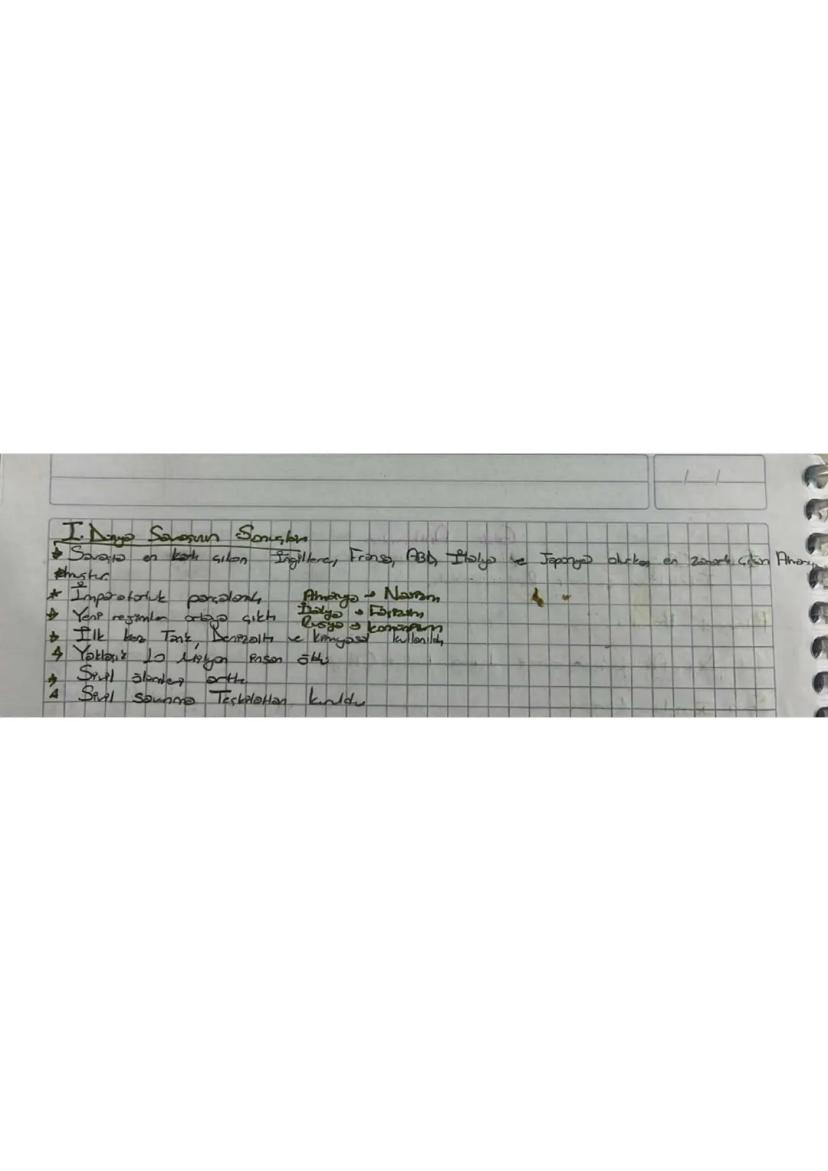 I. Dünya Savaşının Sonuçları
* Savaşta en karlı çıkan İngiltere, Fransa, ABD, İtalya ve Japonya olurken en zararlı çıkan Almanya
olmuştur.
* İmparatorluk parçalandı,
* Yeni rejimler ortaya çıktı
Almanya → Nazizm
İtalya → Faşizm
Rusya → Komünizm
* İlk kez Tank, Denizaltı ve kimyasal kullanıldı,
* Yaklaşık 10 Milyon insan öldü
* Sivil ölümler arttı
* Sivil savunma Teşkilatları kuruldu